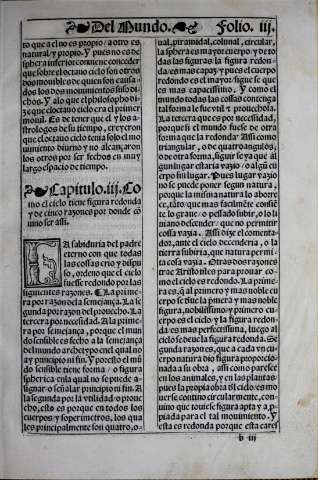 Del Mundo. Folio. iij.
to que a el no es propio/a otro es
natural y propio. Y pues no es de
sphera inferior conuiene conceder
que sobre el octauo cielo son otros
dos mouibles de quien son causa-
dos los dos mouimientos susso di-
chos. Y alo que el philosopho di-
ze que el octauo cielo era el primer
mouil. Es de tener que el y los
astrologos de su tiempo, creyeron
que el octauo cielo tenia solo el mo-
uimiento diurno y no alcançaron
los otros por ser fechos en muy
largo espacio de tiempo.
Capitulo. iij. Co
mo el cielo tiene figura redonda
y de cinco razones por donde cõ
uino ser assi.
LA sabiduria del padre
eterno con que todas
las cossas crio y dispu
so, ordeno que el cielo
fuesse redondo por las
siguientes razones. La prime-
ra por razon dela semejança. La se
gunda por razon del prouecho. La
tercera por necessidad. A la prime-
ra por semejança, porque el mun
do sensible es fecho a la semejança
del mundo archetypo enel qual no
ay principio ni fin. Y por esto el mũ
do sensible tiene forma/o figura
spherica enla qual no se puede a-
signar o señalar principio ni fin. A
la segunda por la vtilidad o proue
cho, esto es porque en todos los
cuerpos ysoperimetros, los qua
les principalmente son quatro, o-
ual, piramidal, colunal, circular,
la sphera es mayor cuerpo, y de to
das las figuras la figura redon-
da es mas capaz y pues el cuerpo
redondo es el mayor: sigue se que
es mas capacissimo. Y como el
mundo todas las cossas contenga
tal forma le fue vtil e prouechosa.
La tercera que es por necessidad,
porque si el mundo fuesse de otra
forma que la redonda: Assi como
triangular, o de quatro angulos;
o de otra forma, siguir se ya que al
gun lugar estaria vazio/o algũ cu
erpo sin lugar. Pues lugar vazio
no se puede poner segun natura,
porque la misma natura lo aborre
ce, tãto que mas facilmẽte consiẽ
te lo graue/o pesado subir, o lo li
uiano descender/que no permitir
cosa vazia. Assi dize el comenta-
dor, ante el cielo decenderia, o la
tierra subiria, que natura permi-
ta cosa vazia. Otras dos razones
trae Aristotiles para prouar co-
mo el cielo es redondo. La prime-
ra es, q̃ al primero y mas noble cu
erpo se due la prĩmera y mas noble
figura, nobilissimo y primero cu-
erpo es el cielo y la figura redon-
da es mas perfectissima, luego al
cielo se deue la figura redonda. Se
gunda razon es, que a cada vn cu-
erpo natura dio figura proporcio-
nada a su obra, assi como parece
en los animales, y en las plantas:
pues la propia obra dl cielo es mo
uerse contino circularmente, con-
uino que touiesse figura apta y a-
piada para el tal mouimiento. Y
esta es redonda porque esta caresce
b iij